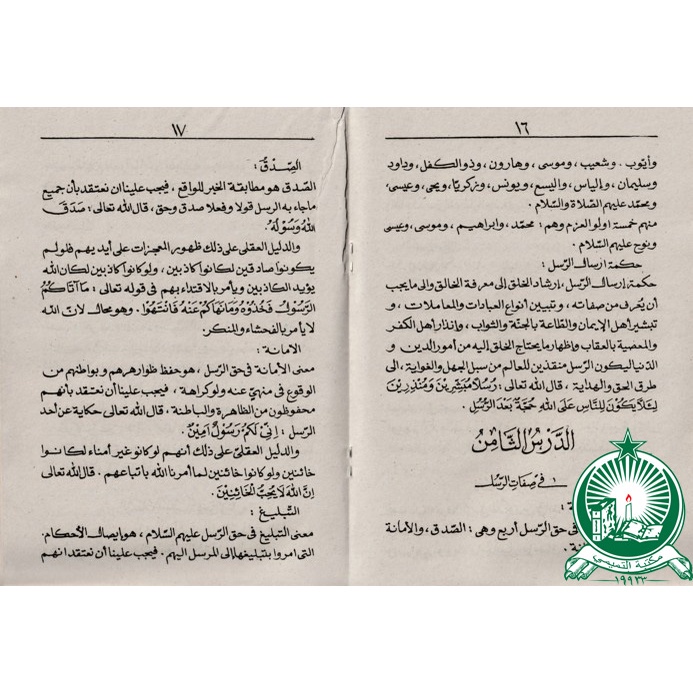 ١٦
وأيوب، وشعيب، وموسى، وهارون، وذوالكفل، وداود
وسليمان، والياس، واليسع، ويونس، وزكريا، ويحيى، وعيسى،
ومحمد عليهم الصلاة والسلام.
منهم خمسة اولو العزم وهم: محمد، وابراهيم، وموسى، وعيسى
ونوح عليهم السلام.
حكمة ارسال الرسل:
حكمة إرسال الرسل، إرشاد الخلق إلى معرفة الخالق والى ما يجب
أن يعرف من صفاته، وتبيين أنواع العبادات والمعاملات، و
تبشير اهل الإيمان والطاعة بالجنة والثواب، وانذار اهل الكفر
والمعصية بالعقاب واظهار ما يحتاج الخلق اليه من أمور الدين و
الدنيا ليكون الرسل منقذين للعالم من سبل الجهل والغواية، الى
طرق الحق والهداية، قال الله تعالى: رُسُلاً مُبَشِّرِينَ وَمُنْذِرِينَ
لِئَلاَّ يَكُوْنَ لِلنَّاسِ عَلَى اللهِ حُجَّةٌ بَعْدَ الرُّسُلِ.
الدَّرْسُ الثَّامِنُ
في صفات الرسل
في حق الرسل أربع وهي: الصدق، والأمانة
١٧
الصِّدْقُ:
الصدق هو مطابقة الخبر للواقع، فيجب علينا ان نعتقد بأن جميع
ماجاء به الرسل قولا وفعلا صدق وحق، قال الله تعالى: صَدَقَ
اللهُ وَرَسُوْلُهُ.
والدليل العقلى على ذلك ظهور المعجزات على أيديهم فلو لم
يكونوا صادقين لكانوا كاذبين، ولو كانوا كاذبين لكان الله
يؤيد الكاذبين ويأمر بالاقتداء بهم فى قوله تعالى: مَا آتَاكُمُ
الرَّسُوْلُ فَخُذُوْهُ وَمَا نَهَاكُمْ عَنْهُ فَانْتَهُوْا. وهو محال لان الله
لا يأمر بالفحشاء والمنكر.
الامانة:
معنى الأمانة في حق الرسل، هو حفظ ظواهرهم وبواطنهم من
الوقوع فى منهيّ عنه ولو كراهة، فيجب علينا أن نعتقد بأنهم
محفوظون من الظاهرة والباطنة، قال الله تعالى حكاية عن احد
الرسل: إِنِّيْ لَكُمْ رَسُوْلٌ أَمِيْنٌ.
والدليل العقليّ على ذلك أنهم لوكانو غير أمناء لكانوا
خائنين ولو كانوا خائنين لما أمرنا الله باتباعهم. قال الله تعالى
إِنَّ اللهَ لاَ يُحِبُّ الْخَائِنِيْنَ.
التَّبليغ:
معنى التبليغ فى حق الرسل عليهم السلام، هو إيصال الأحكام.
التى امروا بتبليغها الى المرسل اليهم. فيجب علينا أن نعتقد انهم
مكتبة التميمي
١٩٩٢٣